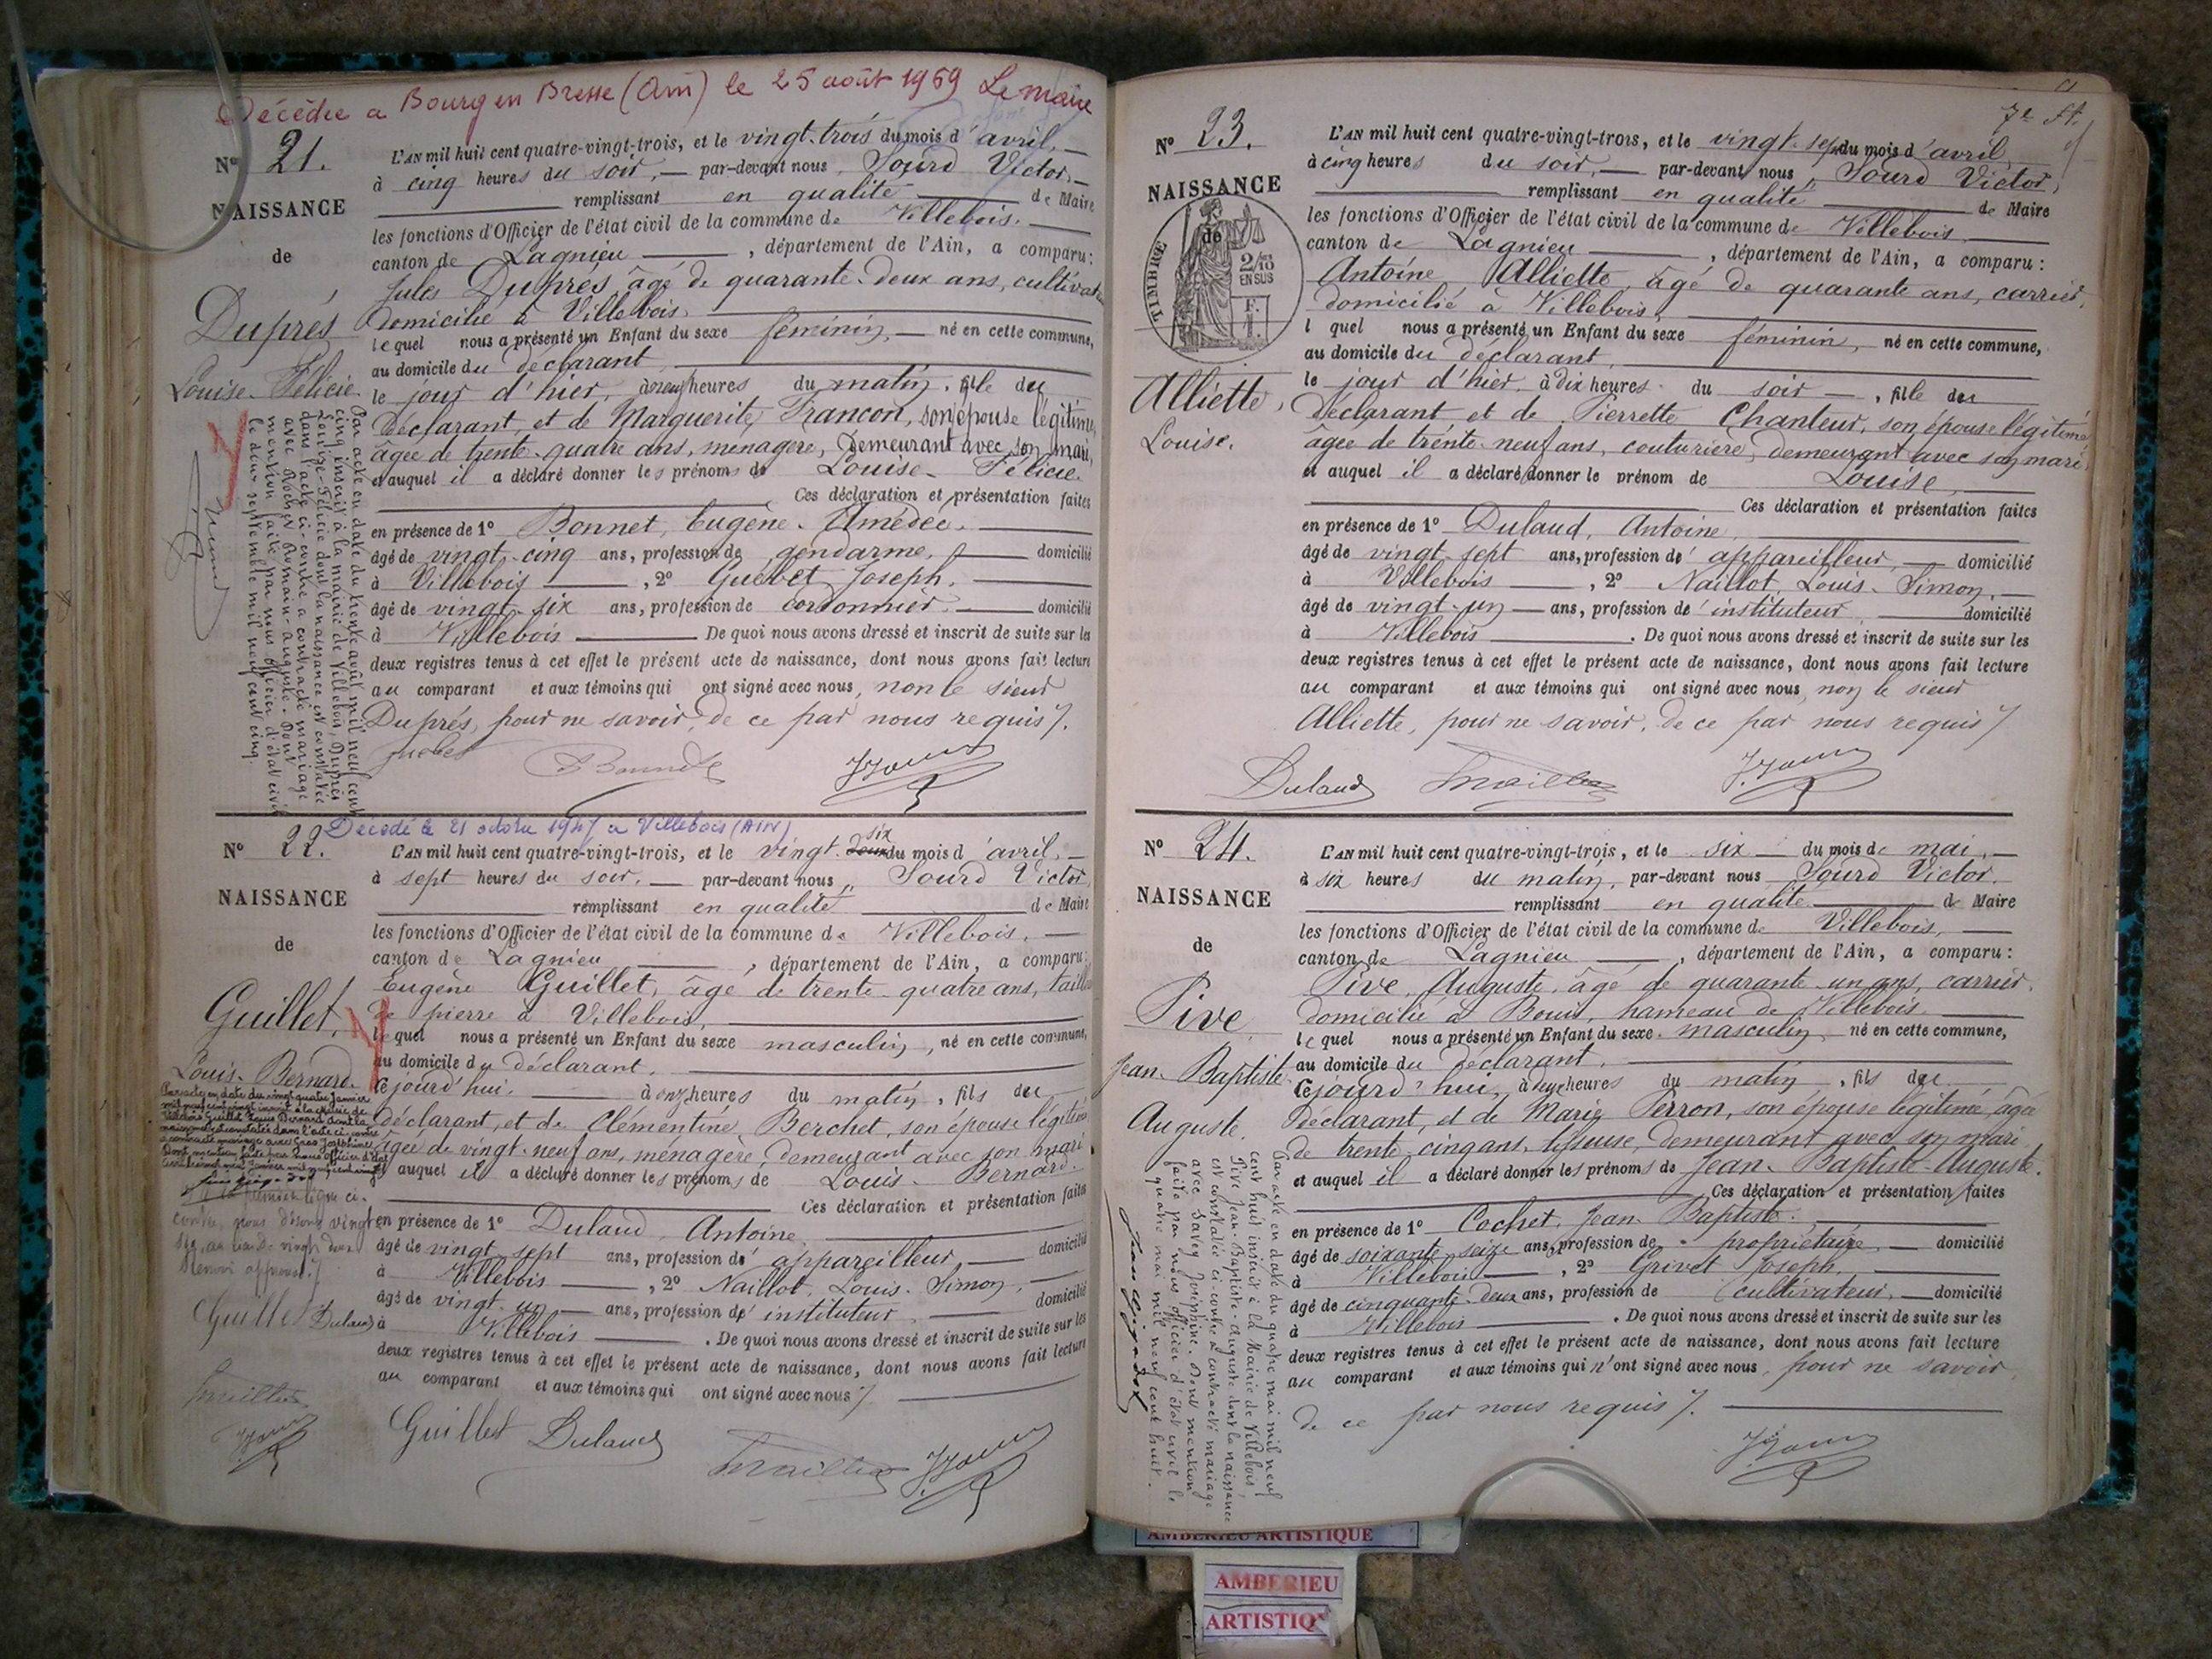 Décédée a Bourg en Bresse (Ain) le 25 août 1969 Le maire
N° 21.
NAISSANCE
de
Duprés
Louise-Félicie
L'AN mil huit cent quatre-vingt-trois, et le vingt-trois du mois d'avril,
à cinq heures du soir, par-devant nous, Sourd Victor,
remplissant en qualité de Maire
les fonctions d'Officier de l'état civil de la commune de Villebois,
canton de Lagnieu, département de l'Ain, a comparu:
Jules Duprés, âgé de quarante-deux ans, cultivateur
domicilié à Villebois,
lequel nous a présenté un Enfant du sexe féminin, né en cette commune,
au domicile du déclarant,
le jour d'hier, à neuf heures du matin, fille du
déclarant, et de Marguerite Francon, son épouse légitime,
âgée de trente-quatre ans, ménagère, demeurant avec son mari,
et auquel il a déclaré donner les prénoms de Louise-Félicie.
Ces déclaration et présentation faites
en présence de 1° Bonnet, Eugène-Amédée.
âgé de vingt-cinq ans, profession de gendarme, domicilié
à Villebois, 2° Joseph.
âgé de vingt-six ans, profession de cordonnier, domicilié
à Villebois. De quoi nous avons dressé et inscrit de suite sur les
deux registres tenus à cet effet le présent acte de naissance, dont nous avons fait lecture
au comparant et aux témoins qui ont signé avec nous, non le sieur
Duprés, pour ne savoir, de ce par nous requis.
Par acte en date du trente août mil neuf cent
cinq inscrit à la mairie de Villebois, Duprés
Louise-Félicie dont la naissance est constatée
dans l'acte ci-contre a contracté mariage
avec Rochet Romain-Auguste. Dont
mention faite par nous officier d'état civil
le deux septembre mil neuf cent cinq.
Décédé le 21 octobre 1947 a Villebois (AIN)
N° 22.
NAISSANCE
de
Guillet,
Louis-Bernard.
L'AN mil huit cent quatre-vingt-trois, et le vingt-deux six du mois d'avril,
à sept heures du soir, par-devant nous, Sourd Victor,
remplissant en qualité de Maire
les fonctions d'Officier de l'état civil de la commune de Villebois,
canton de Lagnieu, département de l'Ain, a comparu:
Eugène Guillet, âgé de trente-quatre ans, tailleur
de pierre à Villebois,
lequel nous a présenté un Enfant du sexe masculin, né en cette commune,
au domicile du déclarant.
Cejourd'hui, à onze heures du matin, fils du
déclarant, et de Clémentine Berchet, son épouse légitime
âgée de vingt-neuf ans, ménagère, demeurant avec son mari
et auquel il a déclaré donner les prénoms de Louis-Bernard.
Ces déclaration et présentation faites
en présence de 1° Dulaud, Antoine,
âgé de vingt-sept ans, profession d'appareilleur, domicilié
à Villebois, 2° Naillot, Louis-Simon,
âgé de vingt-un ans, profession d'instituteur, domicilié
à Villebois. De quoi nous avons dressé et inscrit de suite sur les
deux registres tenus à cet effet le présent acte de naissance, dont nous avons fait lecture
au comparant et aux témoins qui ont signé avec nous
Par acte en date du vingt quatre Janvier
mil neuf cent vingt inscrit à la Mairie de
Villebois Guillet Louis Bernard dont la
naissance est constatée dans l'acte ci-contre
a contracté mariage avec Gras Joséphine
Dont mention faite par Nous Officier d'état
A la première ligne ci-
contre, nous disons vingt-
six, au lieu de vingt-deux
Renvoi approuvé
Guillet Dulaud
Guillet Dulaud
N° 23.
NAISSANCE
de
TIMBRE
2/10
EN SUS
Alliette,
Louise.
L'AN mil huit cent quatre-vingt-trois, et le vingt-sept du mois d'avril,
à cinq heures du soir, par-devant nous, Sourd Victor,
remplissant en qualité de Maire
les fonctions d'Officier de l'état civil de la commune de Villebois
canton de Lagnieu, département de l'Ain, a comparu:
Antoine Alliette, âgé de quarante ans, carrier,
domicilié à Villebois,
l quel nous a présenté un Enfant du sexe féminin, né en cette commune,
au domicile du déclarant,
le jour d'hier, à dix heures du soir, fille du
déclarant et de Pierrette Chanteur, son épouse légitime
âgée de trente-neuf ans, couturière, demeurant avec son mari,
et auquel il a déclaré donner le prénom de Louise,
Ces déclaration et présentation faites
en présence de 1° Dulaud, Antoine,
âgé de vingt-sept ans, profession d'appareilleur, domicilié
à Villebois, 2° Naillot, Louis-Simon,
âgé de vingt-un ans, profession d'instituteur domicilié
à Villebois. De quoi nous avons dressé et inscrit de suite sur les
deux registres tenus à cet effet le présent acte de naissance, dont nous avons fait lecture
au comparant et aux témoins qui ont signé avec nous, non le sieur
Alliette, pour ne savoir, de ce par nous requis
Dulaud
N° 24.
NAISSANCE
de
Pive
Jean-Baptiste-
Auguste.
L'AN mil huit cent quatre-vingt-trois, et le six du mois de mai,
à six heures du matin, par-devant nous, Sourd Victor,
remplissant en qualité de Maire
les fonctions d'Officier de l'état civil de la commune de Villebois,
canton de Lagnieu, département de l'Ain, a comparu:
Pive, Auguste, âgé de quarante-un ans, carrier,
domicilié à Bouis, hameau de Villebois.
lequel nous a présenté un Enfant du sexe masculin, né en cette commune,
au domicile du déclarant.
Cejourd'hui, à deux heures du matin, fils du
déclarant, et de Marie Perron, son épouse légitime, âgée
de trente-cinq ans, tisseuse, demeurant avec son mari
et auquel il a déclaré donner les prénoms de Jean-Baptiste-Auguste.
Ces déclaration et présentation faites
en présence de 1° Cochet, Jean-Baptiste.
âgé de soixante-seize ans, profession de propriétaire, domicilié
à Villebois, 2° Grivet Joseph,
âgé de cinquante-deux ans, profession de cultivateur, domicilié
à Villebois. De quoi nous avons dressé et inscrit de suite sur les
deux registres tenus à cet effet le présent acte de naissance, dont nous avons fait lecture
au comparant et aux témoins qui n'ont signé avec nous, pour ne savoir,
de ce par nous requis.
Par acte en date du quatre mai mil neuf
cent huit inscrit à la Mairie de Villebois,
Pive Jean-Baptiste-Auguste dont la naissance
est constatée ci-contre a contracté mariage
avec Savey Joséphine. Dont mention
faite par nous officier d'état civil le
quatre mai mil neuf cent huit.
AMBERIEU ARTISTIQUE
AMBERIEU
ARTISTIQ